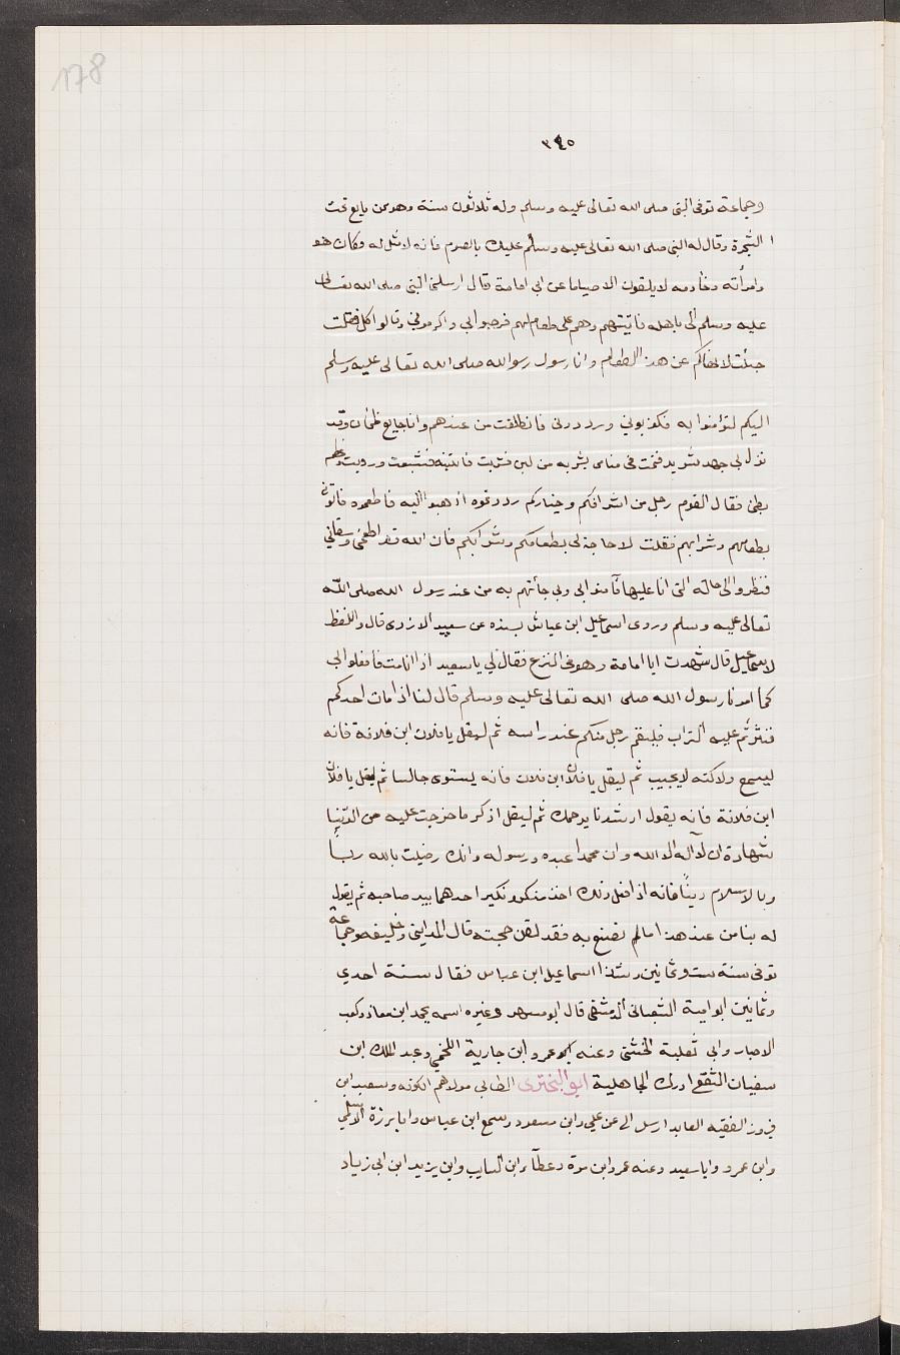 178
٣٤٥
وجماعة توفى النبى صلى الله تعالى عليه وسلم وله ثلاثون سنة وهو ممن بايع تحت
الشجرة وقال له النبى صلى الله تعالى عليه وسلم عليك بالصوم فانه لا مثل له وكان هو
وامرأته وخادمه لا يلقون الا صياما عن ابى امامة قال ارسلنى النبى صلى الله تعالى
عليه وسلم الى باهله فاتيتهم وهم على طعام لهم فرحبوا بى واكرمونى وقالوا كل فقلت
جئت لانهاكم عن هذا الطعام وانا رسول رسول الله صلى الله تعالى عليه وسلم
اليكم لتؤمنوا به فكذبونى وردونى فانطلقت من عندهم وانا جايع ظمان وقد
نزل بى جهد شديد فنمت فى منامى بشربه من لبن فشربت فشبعت ورويت وعظم
بطنى فقال القوم رجل من اشرافكم وخياركم رددتموه اذهبوا اليه فاطعموه فاتونى
بطعامهم وشرابهم فقلت لا حاجة لى بطعامكم وشرابكم فان الله قد اطعمنى وسقانى
فنظروا الى حاله التى انا عليها فآمنوا بى وبى جأتهم به من عند رسول الله صلى الله
تعالى عليه وسلم وروى اسماعيل ابن عياش بسنده عن سعيد الازدى قال واللفظ
لاسماعيل قال شهدت ابا امامة وهو فى النزع فقال لى يا سعيد اذا انا مت فافعلوا بى
كما امرنا رسول الله صلى الله تعالى عليه وسلم قال لنا اذا مات احدكم
فنثرتم عليه التراب فليقم رجل منكم عند راسه ثم ليقل يا فلان ابن فلانة فانه
ليسمع ولاكنه لا يجيب ثم ليقل يا فلان ابن فلان فانه يستوى جالسا ثم ليقل يا فلان
ابن فلانة فانه يقول ارشدنا يرحمك ثم ليقل اذكر ما خرجت عليه من الدنيا
شهادة ان لا آله الا الله وان محمدا عبده ورسوله وانك رضيت بالله ربا
وبالاسلام دينًا فانه اذا فعل ذلك اخذ منكر ونكير احدهما بيد صاحبه ثم يقول
له بنا من عند هذا مالم نصنع به فقد لقن حجته قال المداينى وخليفه وجماعة
توفى سنة ست وثمانين وشذ اسماعيل ابن عياش فقال سنة احدى
وثمانين ابو امية الشعبانى الدمشقى قال ابو مسهر وغيره اسمه يحمد ابن معاذ وكعب
الاحبار وابى ثعلبة الخشنى وعنه عمرو ابن جارية اللخمى وعبد الملك ابن
سفيان الثقفى ادرك الجاهلية ابو البخترى الطائى مولاهم الكوفه وسعيد ابن
فيروز الفقيه العابد ارسل الى عن على وابن مسعود وسمع ابن عباس وابا برزة الاسلمى
وابن عمر وابا سعيد وعنه عمرو ابن مرة وعطآء ابن السايب وابن يزيد ابن ابى زياد